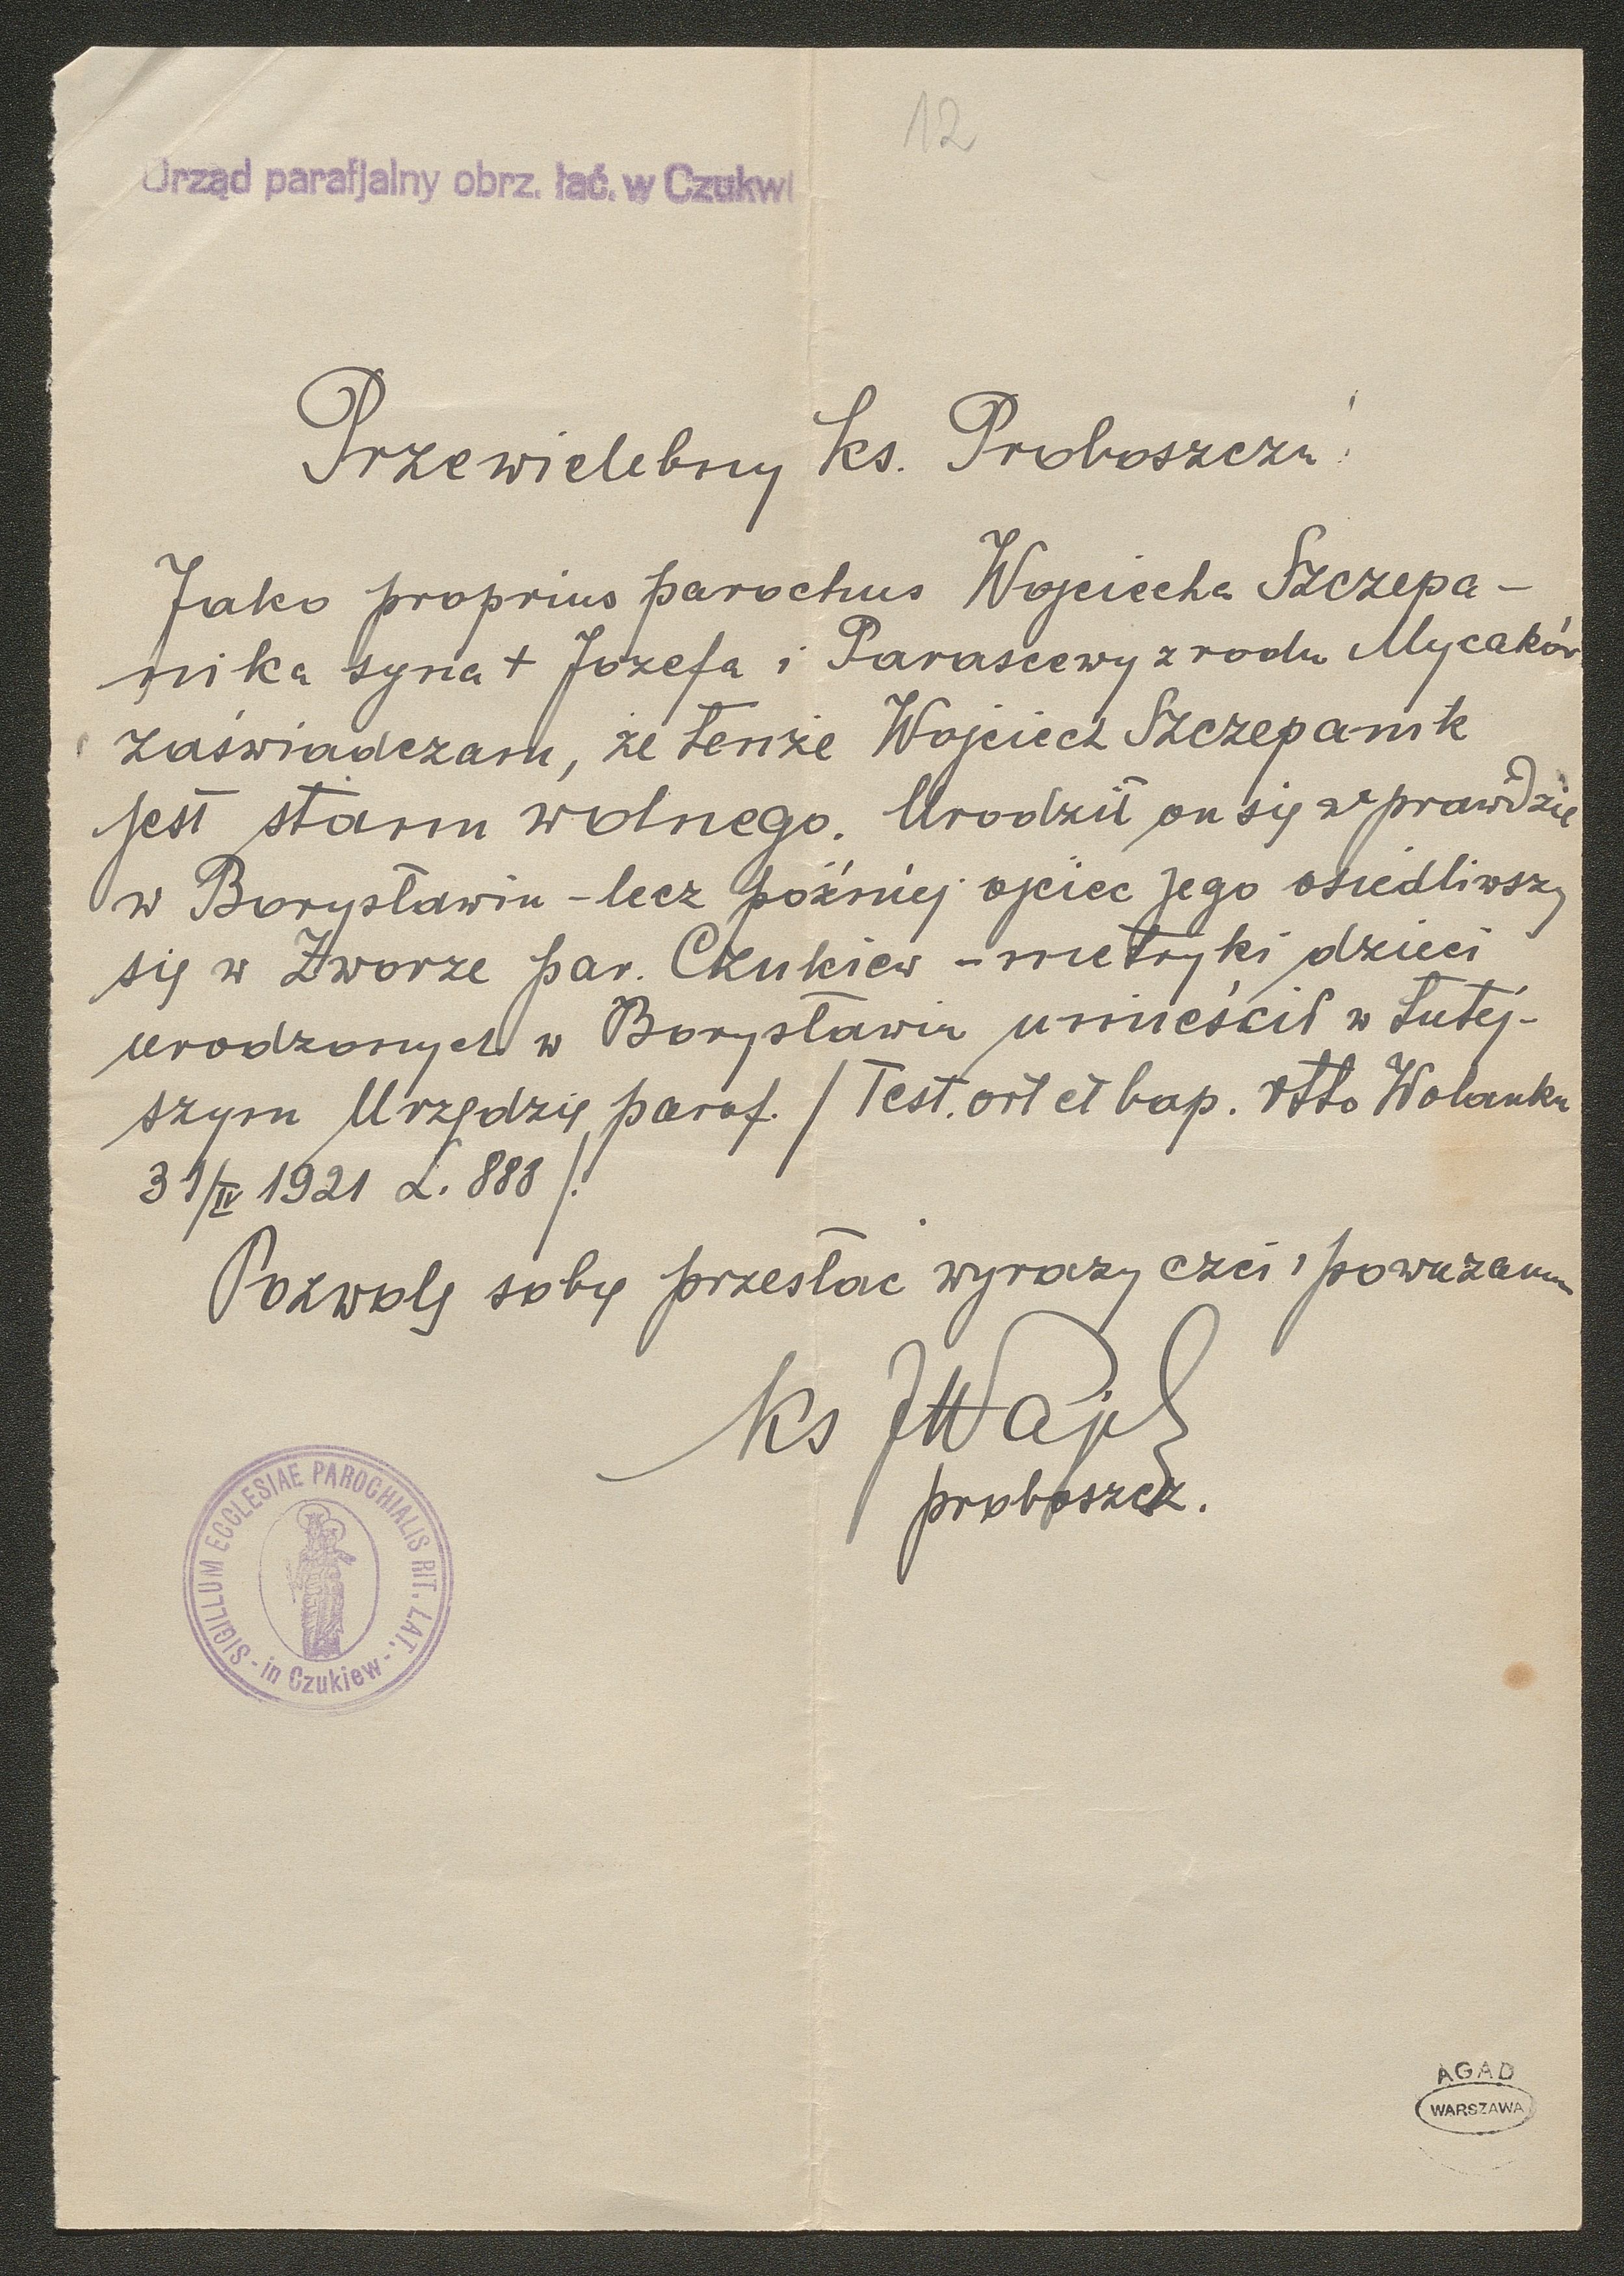 12
Urząd parafjalny obrz. łać. w Czukwi
Przewielebny ks. Proboszczu!
Jako proprius parochus Wojciecha Szczepa-
nika syna + Józefa i Parascewy z rodu Mycaków
zaświadczam, że tenże Wojciech Szczepanik
jest stanu wolnego. Urodził on się wprawdzie
w Borysławiu - lecz później ojciec jego osiedliwszy
się w Zworze par. Czukiew - metryki dzieci
urodzonych w Borysławiu umieścił w tutej-
szym Urzędzie paraf. / Test. ort et bap. Wolanka
31/IV 1921 L. 888 /.
Pozwolę sobię przesłać wyrazy czci i poważania
ks
proboszcz.
SIGILLUM ECCLESIAE PAROCHIALIS RIT. LAT.
- in Czukiew -
AGAD
WARSZAWA